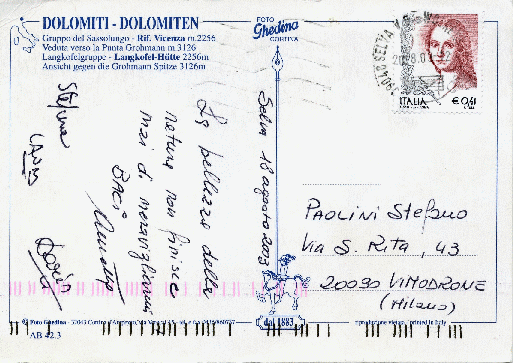 DOLOMITI - DOLOMITEN
Gruppo del Sassolungo - Rif. Vicenza m.2256
Veduta verso la Punta Grohmann m.3126
Langkofelgruppe - Langkofel-Hütte 2256m
Ansicht gegen die Grohmann Spitze 3126m
FOTO
Ghedina
CORTINA
ITALIA
€ 0,41
Selva 18 agosto 2003
La bellezza della
natura non finisce
mai di meravigliarmi
BACI
Stefania
PAOLINI Stefano
Via S. Rita, 43
20090 VIMODRONE
(Milano)
dal 1883
Foto Ghedina
Printed in Italy
AB 42.3